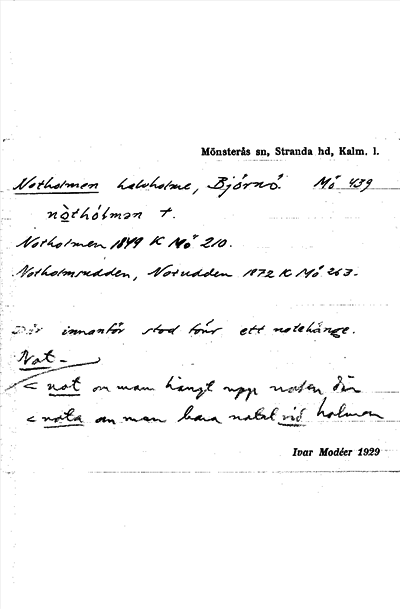 Mönsterås sn, Stranda hd, Kalm. l.
Notholmen halvholme, Björnö. Mö 439
nòthólmən †.
Notholmen 1849 K Mö 210.
Notholmsudden, Notudden 1872 K Mö 263.
Där innanför stod förr ett notehänge.
Not-
< not om man hängt upp noten där
< nota om man bara notat vid holmen
Ivar Modéer 1929